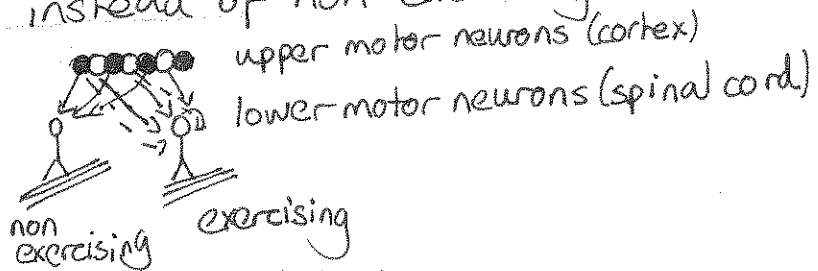 instead of non
upper motor neurons (cortex)
lower motor neurons (spinal cord)
non exercising
exercising